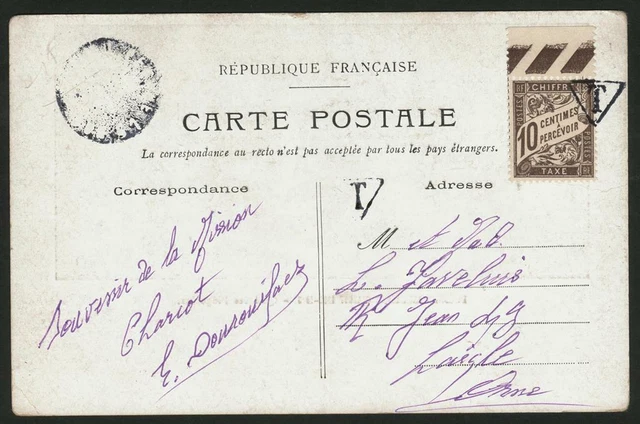 RÉPUBLIQUE FRANÇAISE
CARTE POSTALE
La correspondance au recto n'est pas acceptée par tous les pays étrangers.
Correspondance
Adresse
Souvenir de la Mission
Charcot
E.
T
T
RF CHIFFRE
POSTES
10 CENTIMES À PERCEVOIR
TAXE
M et Mad.
Jean
Laigle
Orne